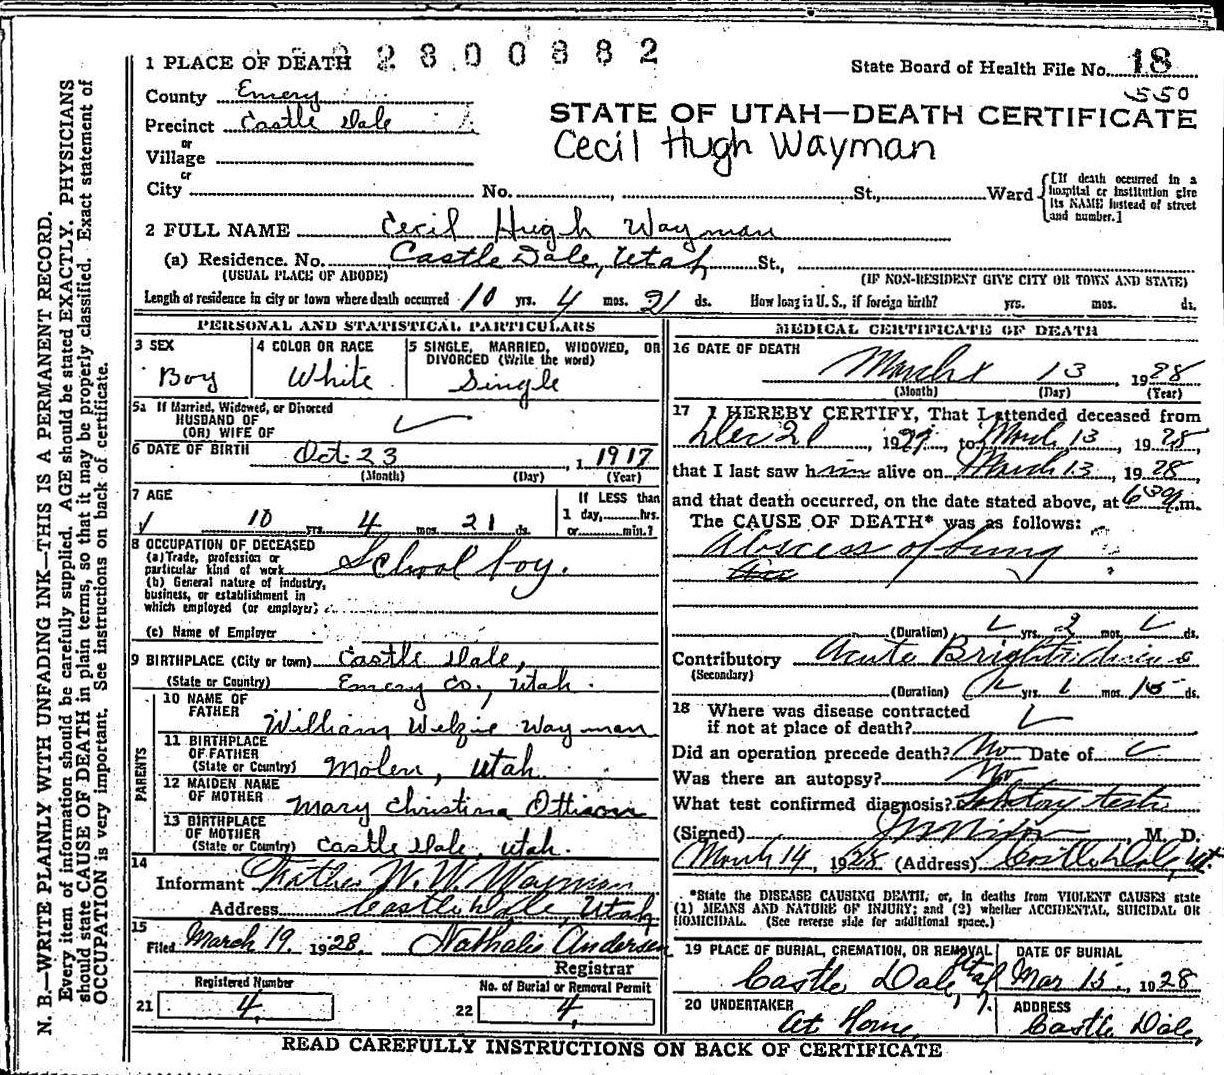 2 8 0 0 8 8 2
1 PLACE OF DEATH
State Board of Health File No. 18
550
County Emery
STATE OF UTAH—DEATH CERTIFICATE
Precinct Castle Dale
Cecil Hugh Wayman
or
Village
or
City No. St., Ward
[If death occurred in a
hospital or institution give
its NAME instead of street
and number.]
2 FULL NAME Cecil Hugh Wayman
(a) Residence. No. Castle Dale, Utah St.,
(USUAL PLACE OF ABODE) (IF NON-RESIDENT GIVE CITY OR TOWN AND STATE)
Length of residence in city or town where death occurred 10 yrs. 4 mos. 21 ds. How long in U. S., if foreign birth? yrs. mos. ds.
PERSONAL AND STATISTICAL PARTICULARS
3 SEX Boy
4 COLOR OR RACE White
5 SINGLE, MARRIED, WIDOWED, OR
DIVORCED (Write the word)
Single
5a If Married, Widowed, or Divorced
HUSBAND OF
(OR) WIFE OF
6 DATE OF BIRTH Oct 23, 1 1917
(Month) (Day) (Year)
7 AGE
10 yrs. 4 mos. 21 ds.
If LESS than
1 day, hrs.
or min.?
8 OCCUPATION OF DECEASED
(a) Trade, profession or
particular kind of work School boy.
(b) General nature of industry,
business, or establishment in
which employed (or employer)
(c) Name of Employer
9 BIRTHPLACE (City or town) Castle Dale,
(State or Country) Emery Co., Utah.
PARENTS
10 NAME OF
FATHER William Wayman
11 BIRTHPLACE
OF FATHER
(State or Country) Molen, Utah
12 MAIDEN NAME
OF MOTHER Mary Christina Ottison
13 BIRTHPLACE
OF MOTHER
(State or Country) Castle Dale, Utah.
14
Informant Father W. W. Wayman
Address Castle Dale, Utah
15
Filed March 19, 1928. Nathalie Andersen
Registrar
Registered Number
21 4
No. of Burial or Removal Permit
22 4
MEDICAL CERTIFICATE OF DEATH
16 DATE OF DEATH
March 13, 1928
(Month) (Day) (Year)
17 I HEREBY CERTIFY, That I attended deceased from
Dec 21, 1927, to March 13, 1928,
that I last saw him alive on March 13, 1928,
and that death occurred, on the date stated above, at 6 30 m.
The CAUSE OF DEATH* was as follows:
Abscess of Lung
(Duration) yrs. 2 mos. ds.
Contributory Acute Brights disease
(Secondary)
(Duration) yrs. 1 mos. 15 ds.
18 Where was disease contracted
if not at place of death?
Did an operation precede death? No Date of
Was there an autopsy? No
What test confirmed diagnosis? tests
(Signed) , M. D.
March 14, 1928 (Address) Castle Dale, Ut
*State the DISEASE CAUSING DEATH, or, in deaths from VIOLENT CAUSES state
(1) MEANS AND NATURE OF INJURY; and (2) whether ACCIDENTAL, SUICIDAL OR
HOMICIDAL. (See reverse side for additional space.)
19 PLACE OF BURIAL, CREMATION, OR REMOVAL
Castle Dale, Utah
DATE OF BURIAL
Mar 15, 1928
20 UNDERTAKER
At Home,
ADDRESS
Castle Dale,
READ CAREFULLY INSTRUCTIONS ON BACK OF CERTIFICATE
N. B.—WRITE PLAINLY WITH UNFADING INK—THIS IS A PERMANENT RECORD.
Every item of information should be carefully supplied. AGE should be stated EXACTLY. PHYSICIANS
should state CAUSE OF DEATH in plain terms, so that it may be properly classified. Exact statement of
OCCUPATION is very important. See instructions on back of certificate.